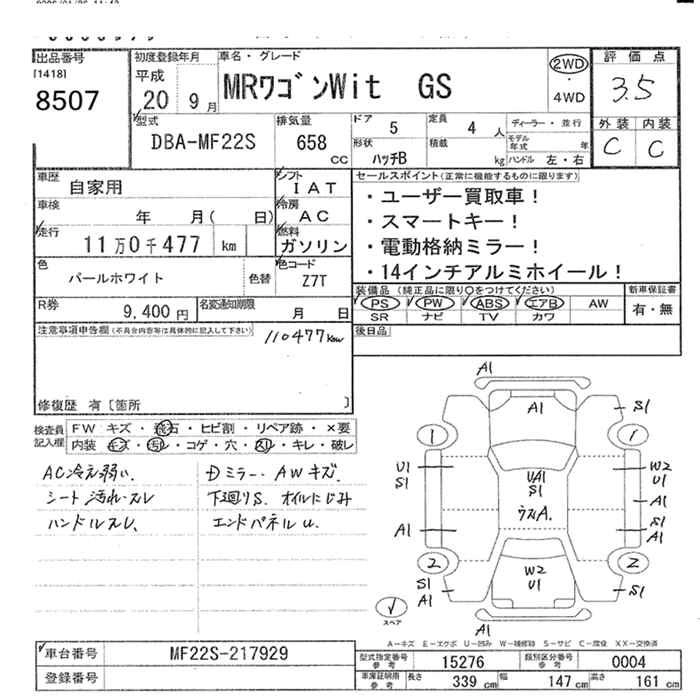 出品番号
[1418]
8507
初度登録年月
平成
20 9月
車名・グレード
MRワゴンWit GS
2WD
・
4WD
評価点
3.5
外装 内装
C C
型式
DBA-MF22S
排気量
658
CC
ドア 5
形状 ハッチB
定員 4 人
積載 kg
ディーラー・並行
モデル年式 年
ハンドル 左・右
車歴 自家用
車検 年 月( 日)
走行 11万0千477 km
シフト IAT
冷房 AC
燃料 ガソリン
色 パールホワイト 色替
色コード Z7T
R券 9,400円
名変通知期限 月 日
セールスポイント(正常に機能するものに限ります)
・ユーザー買取車!
・スマートキー!
・電動格納ミラー!
・14インチアルミホイール!
装備品 (純正品に限り○をつけてください)
PS PW ABS エアB AW
SR ナビ TV カワ
新車保証書
有・無
後日品
注意事項申告欄(不具合内容等は具体的に記入して下さい)
110477km
修復歴 有〔箇所 〕
検査員記入欄
FW キズ・飛石・ヒビ割・リペア跡・×要
内装 キズ・汚レ・コゲ・穴・スレ・キレ・破レ
AC冷え弱い、
シート汚れ・スレ
ハンドルスレ、
Dミラー・AWキズ、
下廻りS、オイルにじみ
エンドパネルU、
A1
A1
S1
1
1
U1
S1
UA1
S1
W2
U1
A1
ウスA.
A1
S1
A1
2
2
W2
U1
S1
A1
S1
A1
スペア
A-キズ E-エクボ U-凹み W-補修跡 S-サビ C-腐食 XX-交換済
車台番号 MF22S-217929
登録番号
型式指定番号 参考 15276
類別区分番号 参考 0004
車庫証明用 参考 長さ 339 cm 幅 147 cm 高さ 161 cm